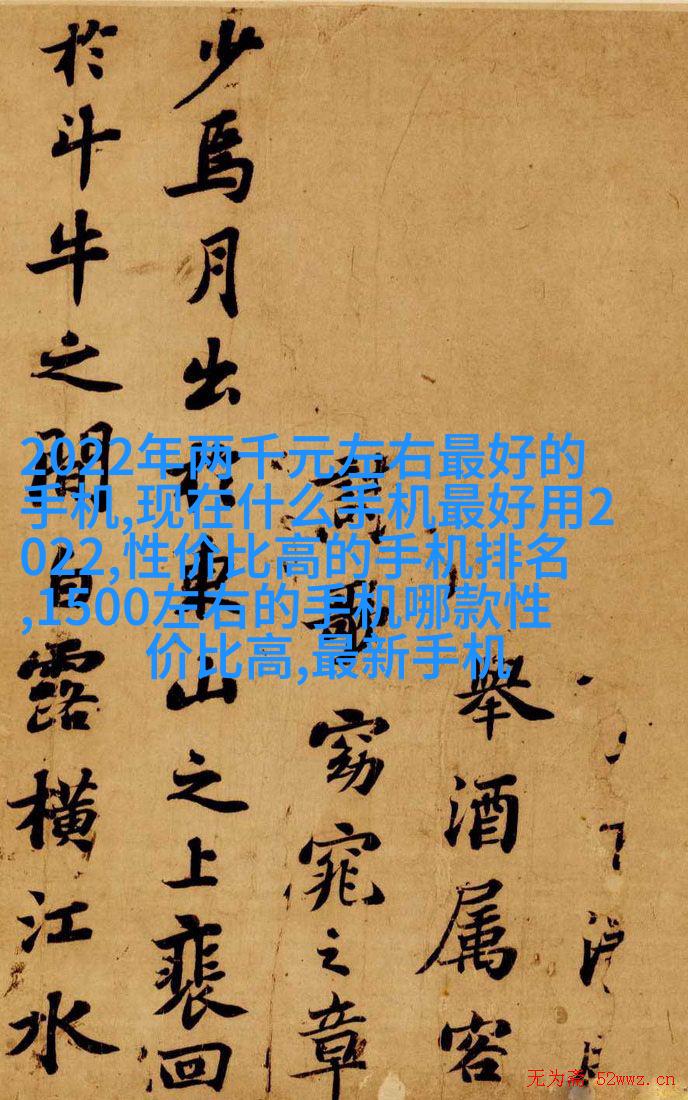 舉酒属客
歌窈窕之章
少焉月出於東山之上裴回
於斗牛之間白露橫江水
2022年两千元左右最好的
手机,现在什么手机最好用2
022,性价比高的手机排名
,1500左右的手机哪款性
价比高,最新手机
无为斋 52wwz.cn